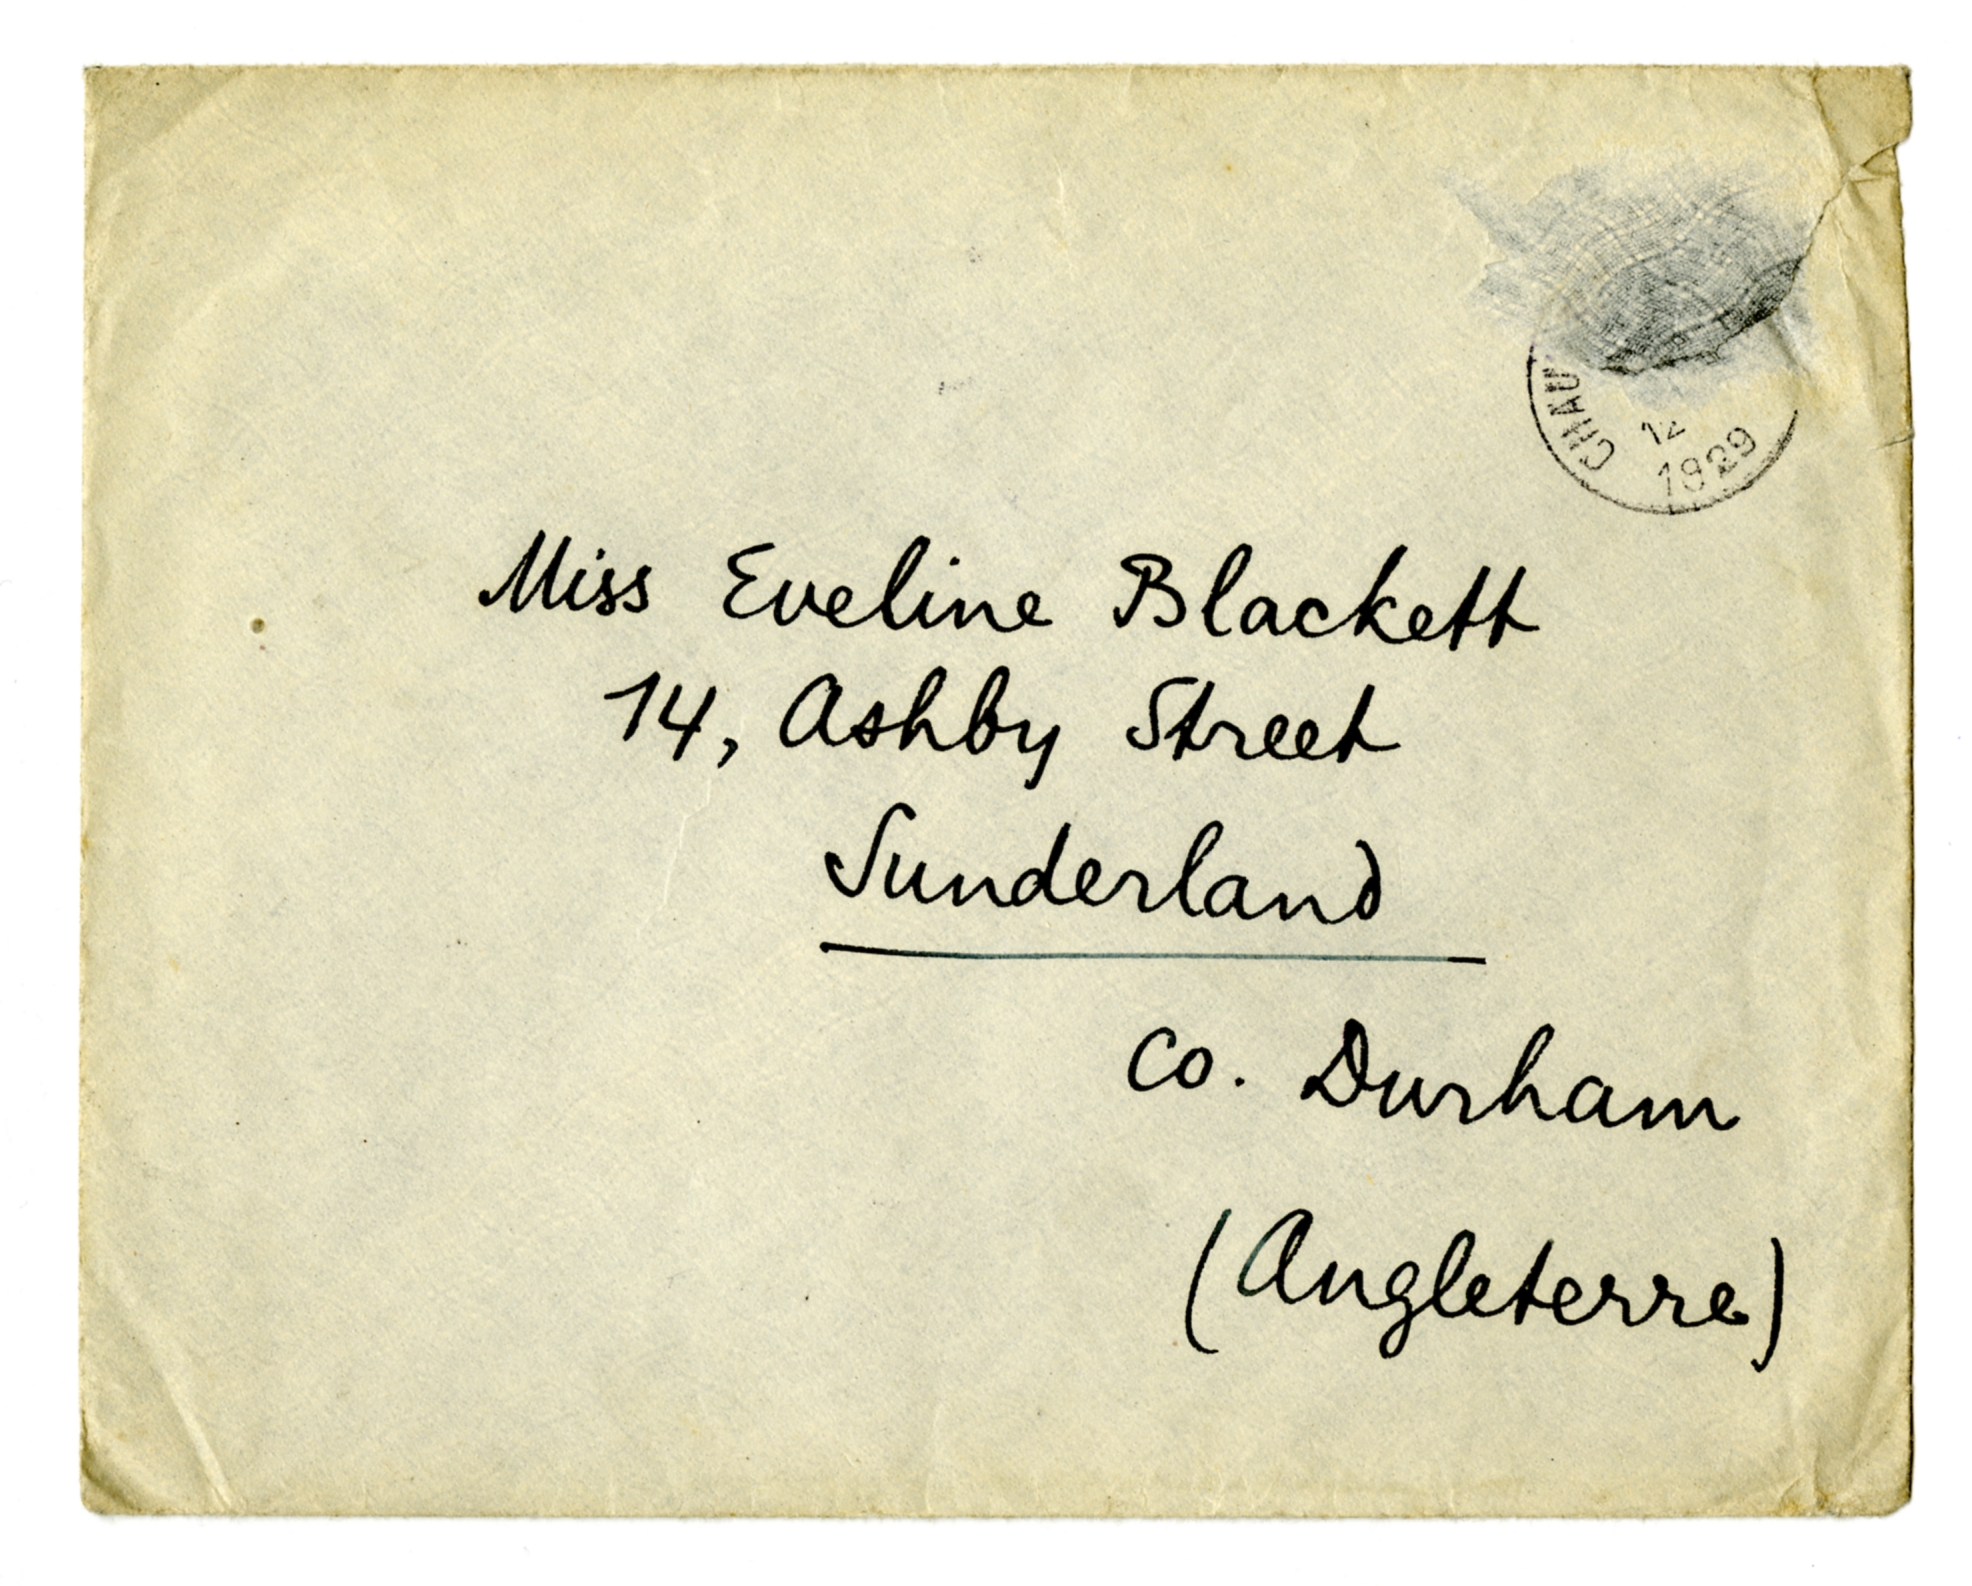 CHAU
12
1929
Miss Eveline Blackett
14, Ashby Street
Sunderland
Co. Durham
(Angleterre)